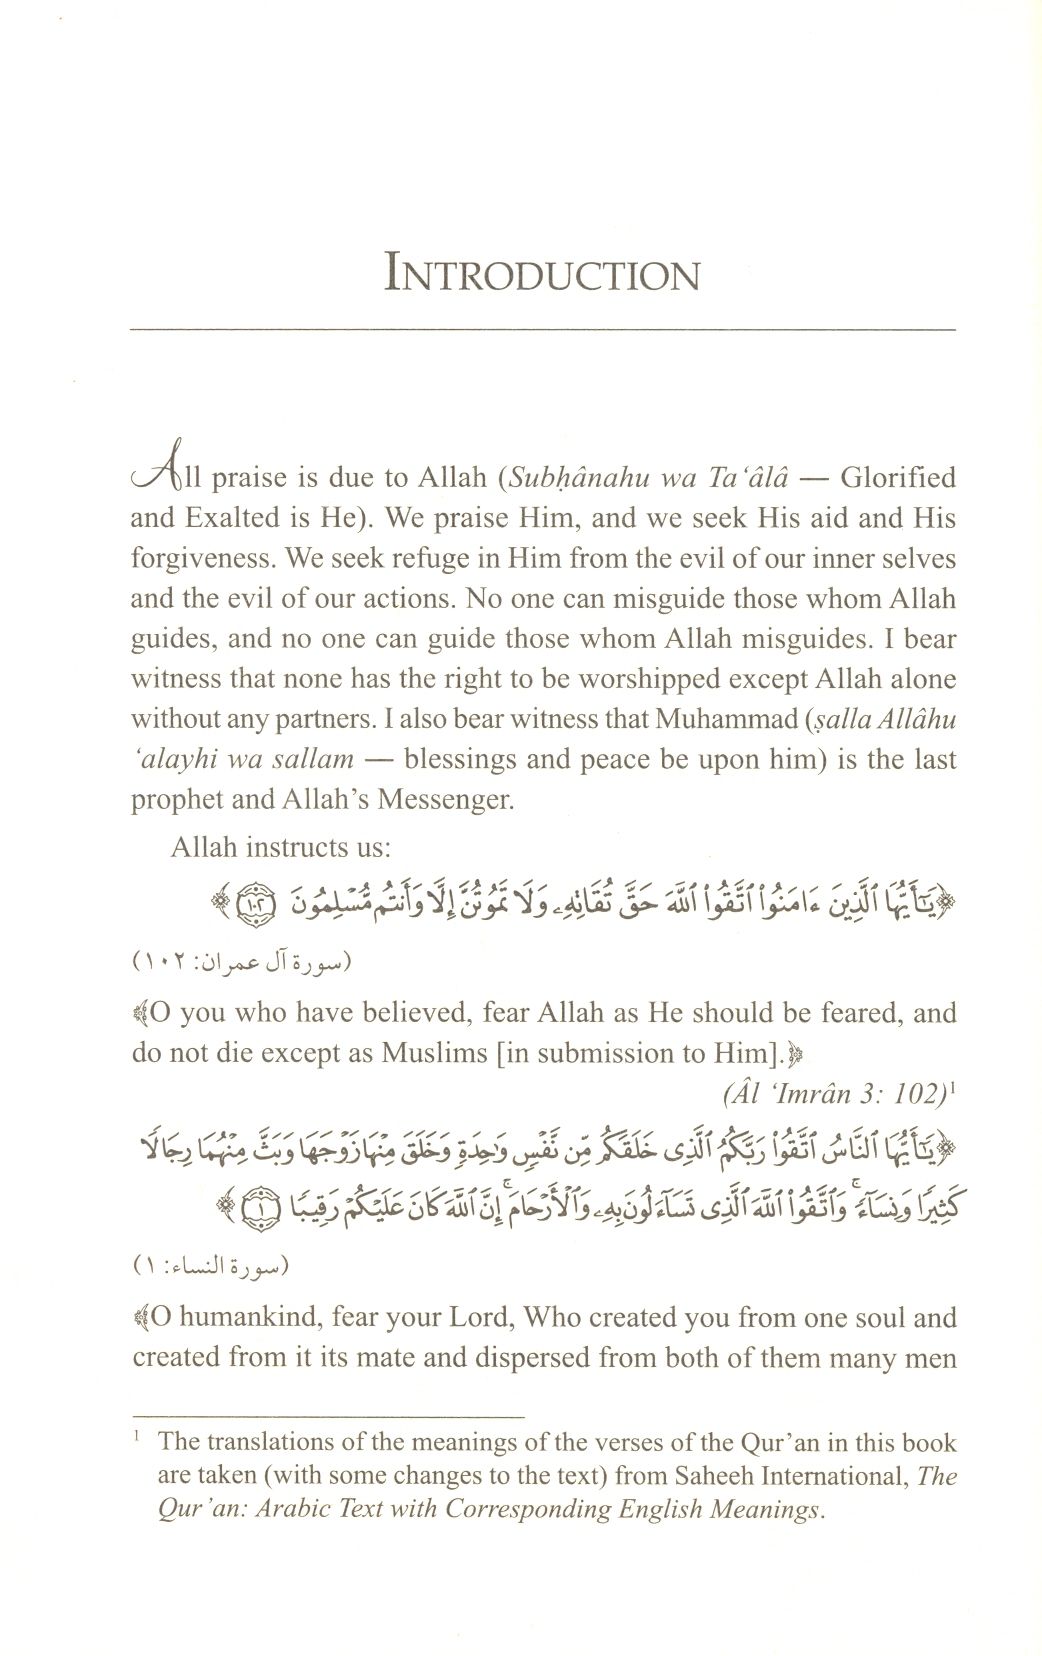 INTRODUCTION
All praise is due to Allah (Subḥânahu wa Ta‘âlâ — Glorified
and Exalted is He). We praise Him, and we seek His aid and His
forgiveness. We seek refuge in Him from the evil of our inner selves
and the evil of our actions. No one can misguide those whom Allah
guides, and no one can guide those whom Allah misguides. I bear
witness that none has the right to be worshipped except Allah alone
without any partners. I also bear witness that Muhammad (ṣalla Allâhu
‘alayhi wa sallam — blessings and peace be upon him) is the last
prophet and Allah’s Messenger.
Allah instructs us:
﴿يَـٰٓأَيُّهَا ٱلَّذِينَ ءَامَنُوا۟ ٱتَّقُوا۟ ٱللَّهَ حَقَّ تُقَاتِهِۦ وَلَا تَمُوتُنَّ إِلَّا وَأَنتُم مُّسْلِمُونَ ١٠٢﴾
(سورة آل عمران: ١٠٢)
﴾O you who have believed, fear Allah as He should be feared, and
do not die except as Muslims [in submission to Him].﴿
(Âl ‘Imrân 3: 102)¹
﴿يَـٰٓأَيُّهَا ٱلنَّاسُ ٱتَّقُوا۟ رَبَّكُمُ ٱلَّذِى خَلَقَكُم مِّن نَّفْسٍ وَٰحِدَةٍ وَخَلَقَ مِنْهَا زَوْجَهَا وَبَثَّ مِنْهُمَا رِجَالًا
كَثِيرًا وَنِسَآءً ۚ وَٱتَّقُوا۟ ٱللَّهَ ٱلَّذِى تَسَآءَلُونَ بِهِۦ وَٱلْأَرْحَامَ ۚ إِنَّ ٱللَّهَ كَانَ عَلَيْكُمْ رَقِيبًا ١﴾
(سورة النساء: ١)
﴾O humankind, fear your Lord, Who created you from one soul and
created from it its mate and dispersed from both of them many men
¹ The translations of the meanings of the verses of the Qur’an in this book
are taken (with some changes to the text) from Saheeh International, The
Qur’an: Arabic Text with Corresponding English Meanings.